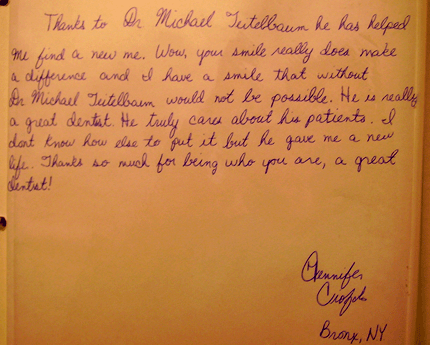 Thanks to Dr. Michael Teitelbaum he has helped
me find a new me. Wow, your smile really does make
a difference and I have a smile that without
Dr Michael Teitelbaum would not be possible. He is really
a great dentist. He truly cares about his patients. I
dont know how else to put it but he gave me a new
life. Thanks so much for being who you are, a great
dentist!
Jennifer
Bronx, NY